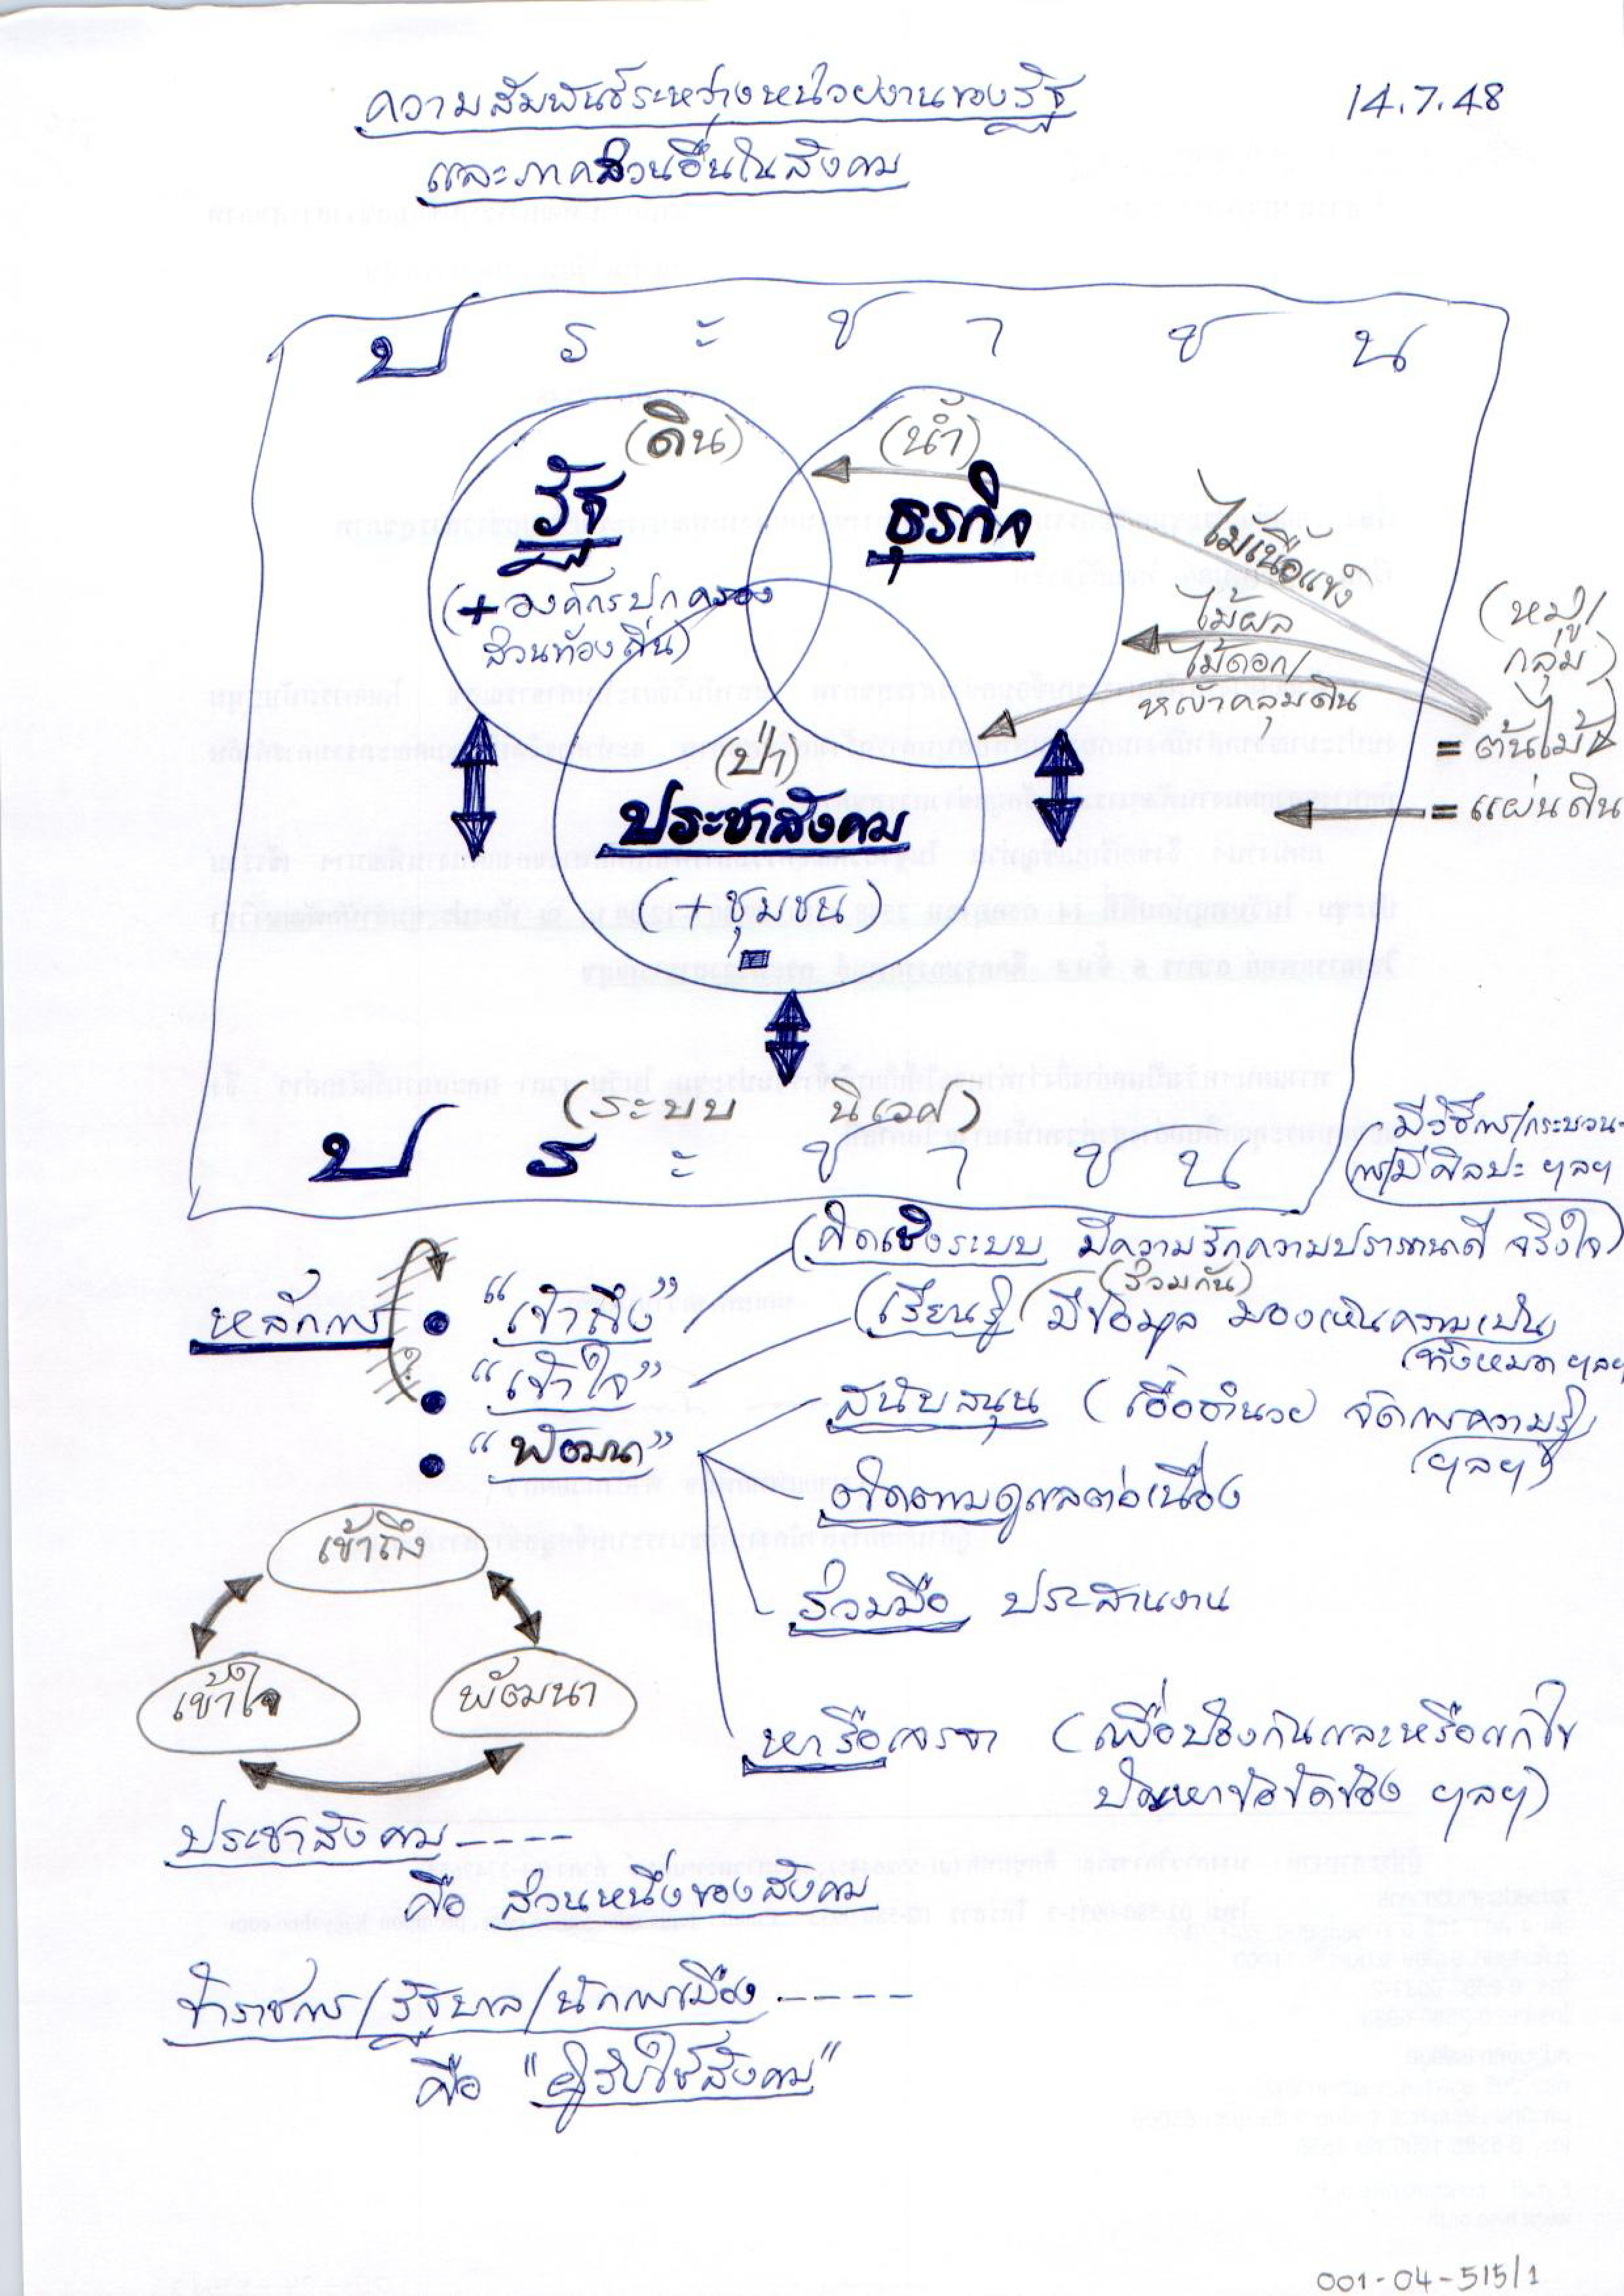 ความสัมพันธ์ระหว่างหน่วยงานของรัฐ
14.7.48
และภาคส่วนอื่นในสังคม
ป ร ะ ช า ช น
(ดิน)
(น้ำ)
รัฐ
ธุรกิจ
(+องค์กรปกครอง
ส่วนท้องถิ่น)
ไม้เนื้อแข็ง
ไม้ผล
ไม้ดอก/
หญ้าคลุมดิน
(หมู่/
กลุ่ม)
= ต้นไม้
= แผ่นดิน
(ป่า)
ประชาสังคม
(+ชุมชน)
(ระบบ นิเวศ)
ป ร ะ ช า ช น
มีวิธีการ/กระบวน-
การ/มีศิลปะ ฯลฯ
หลักการ
• "เข้าถึง"
(คิดเชิงระบบ มีความรักความปรารถนาดี จริงใจ)
• "เข้าใจ"
(เรียนรู้ (ร่วมกัน) มีข้อมูล มองเห็นความเป็น
ทั้งหมด ฯลฯ
• "พัฒนา"
สนับสนุน (เอื้ออำนวย จัดการความรู้
ฯลฯ)
ติดตามดูแลต่อเนื่อง
ร่วมมือ ประสานงาน
หารือเจรจา (เพื่อป้องกันและหรือแก้ไข
ปัญหาข้อขัดข้อง ฯลฯ)
เข้าถึง
เข้าใจ
พัฒนา
ประชาสังคม----
คือ ส่วนหนึ่งของสังคม
ข้าราชการ/รัฐบาล/นักการเมือง----
คือ "ผู้รับใช้สังคม"
001-04-515/1